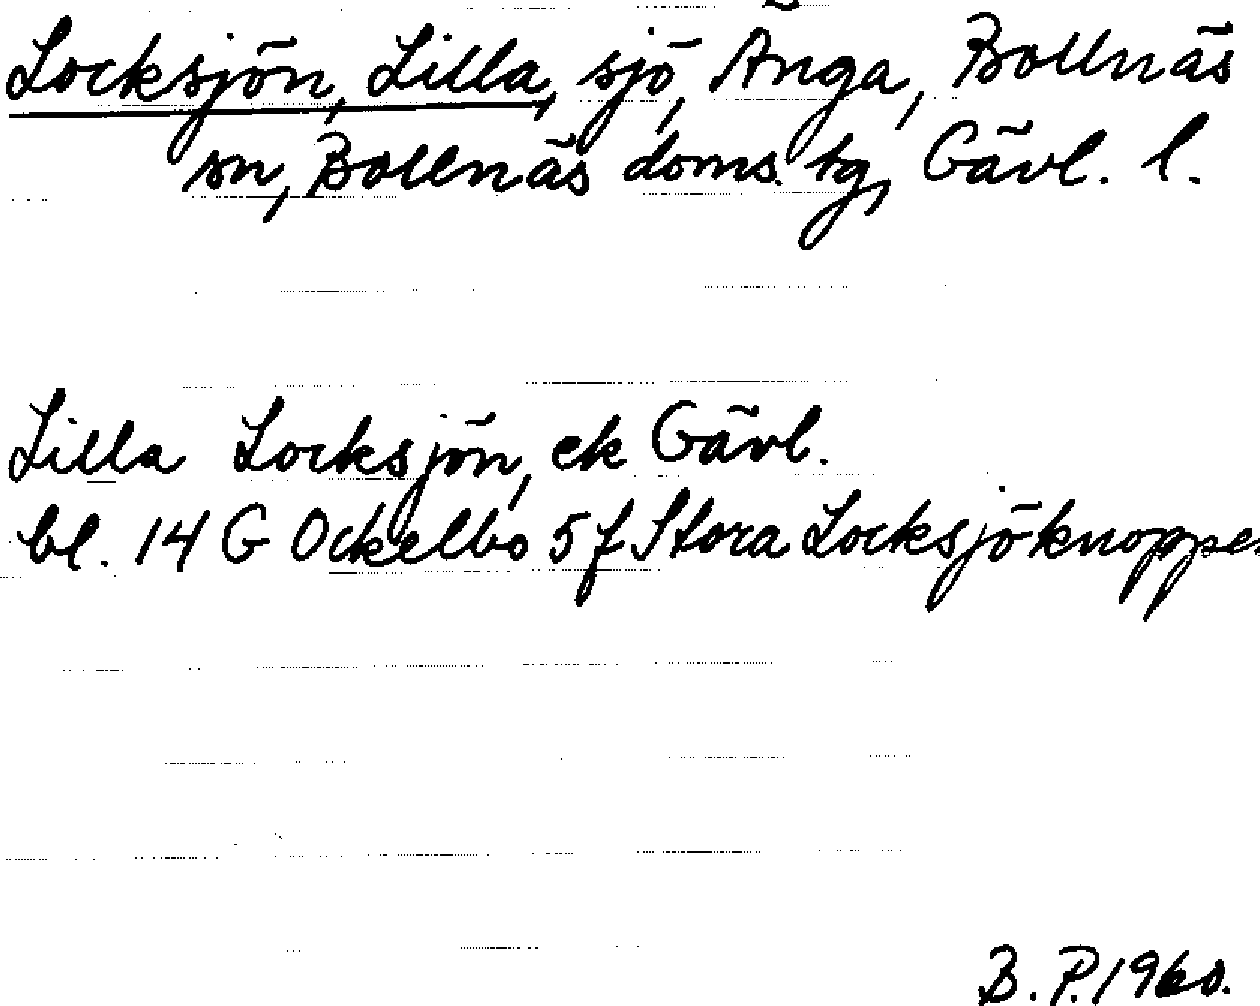 Locksjön, Lilla, sjö, Änga, Bollnäs
sn, Bollnäs doms. tg, Gävl. l.
Lilla Locksjön, ek Gävl.
bl. 14 G Ockelbo 5 f Stora Locksjöknoppen
B. P. 1960.